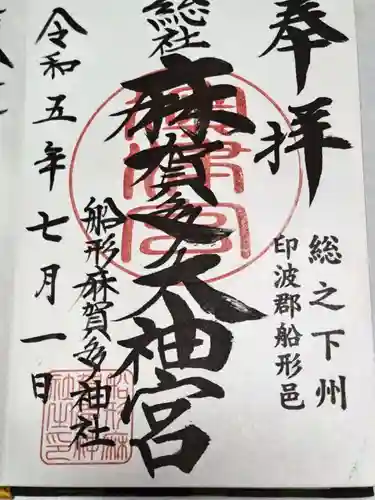 奉拝
総之下州
印波郡船形邑
総社
麻賀多大神宮
船形麻賀多神社
令和五年七月一日